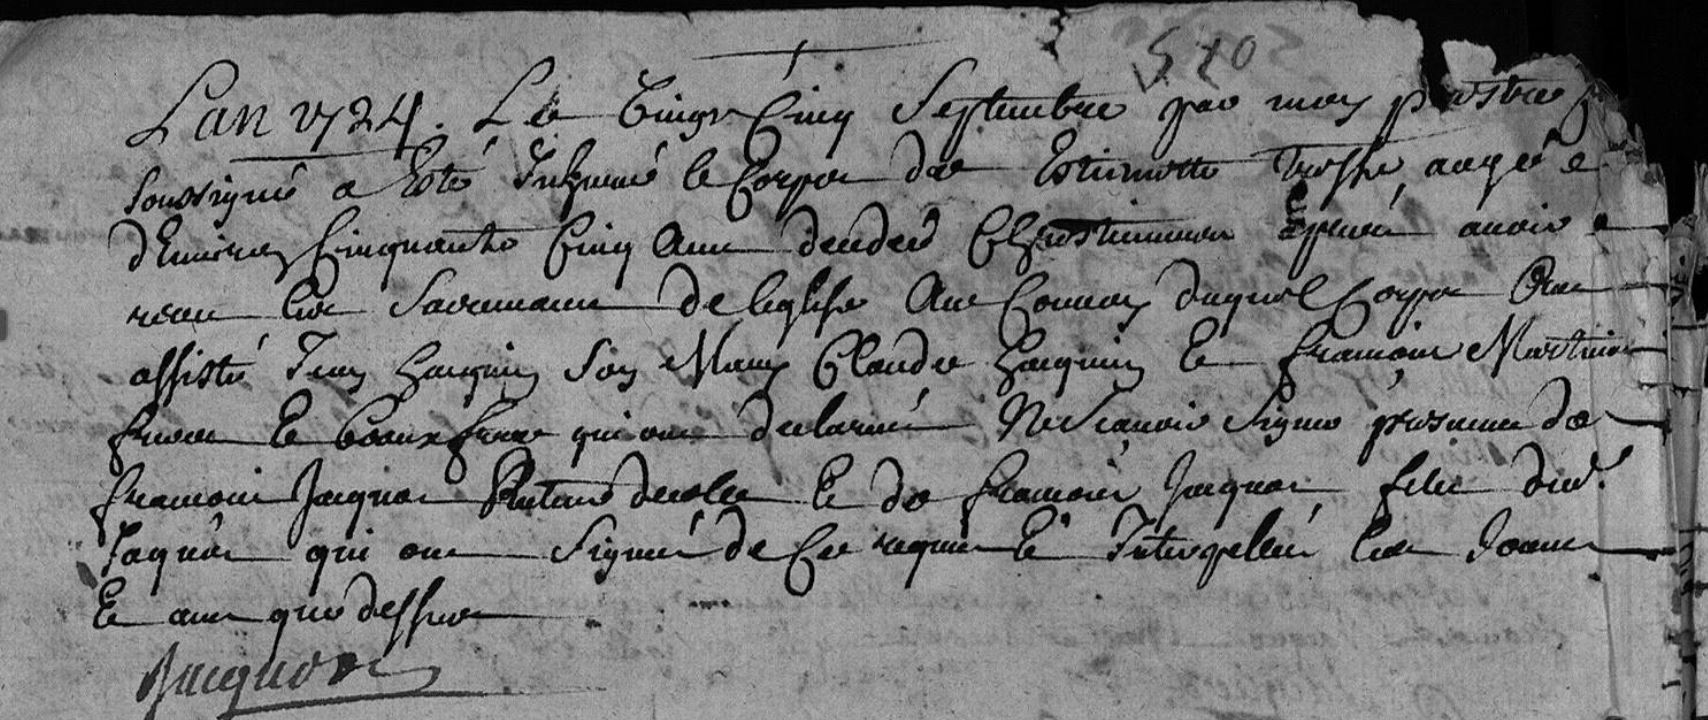 510
Lan 1724. Le Vingt Cinq Septembre par moy prestre
soussigné a Esté Inhumé le Corps de Estiennette aagée
dEnviron Cinquante Cinq Ans decedée Chrestiennement apres avoir
receu les Sacrements de leglise Au Convoy duquel Corps Ont
assisté Jean Jacquin Son Mary Claude Jacquin Et francois Martin
freres Et beaux freres qui ont declarés Ne Scavoir Signer presence de
francois Jacquot Recteur descolle Et de francois Jacquot fils dud.
Jaquot qui ont Signés de Ce requis Et Interpellés Les Jours
Et an que dessus
Jacquot